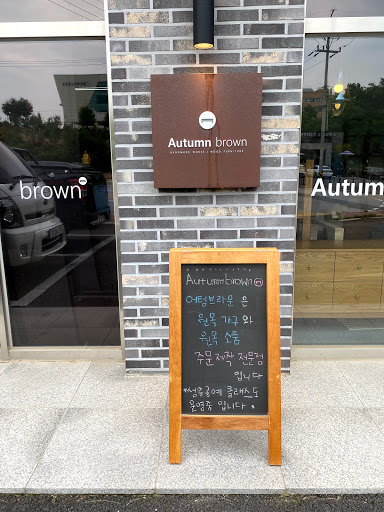 Autumn brown
HANDMADE WORKS & WOOD FURNITURE
brown
Autum
Autumnbrown
어텀브라운 은
원목 가구 와
원목 소품
주문제작 전문점
입니다
*섬유공예 클래스도
운영중 입니다.